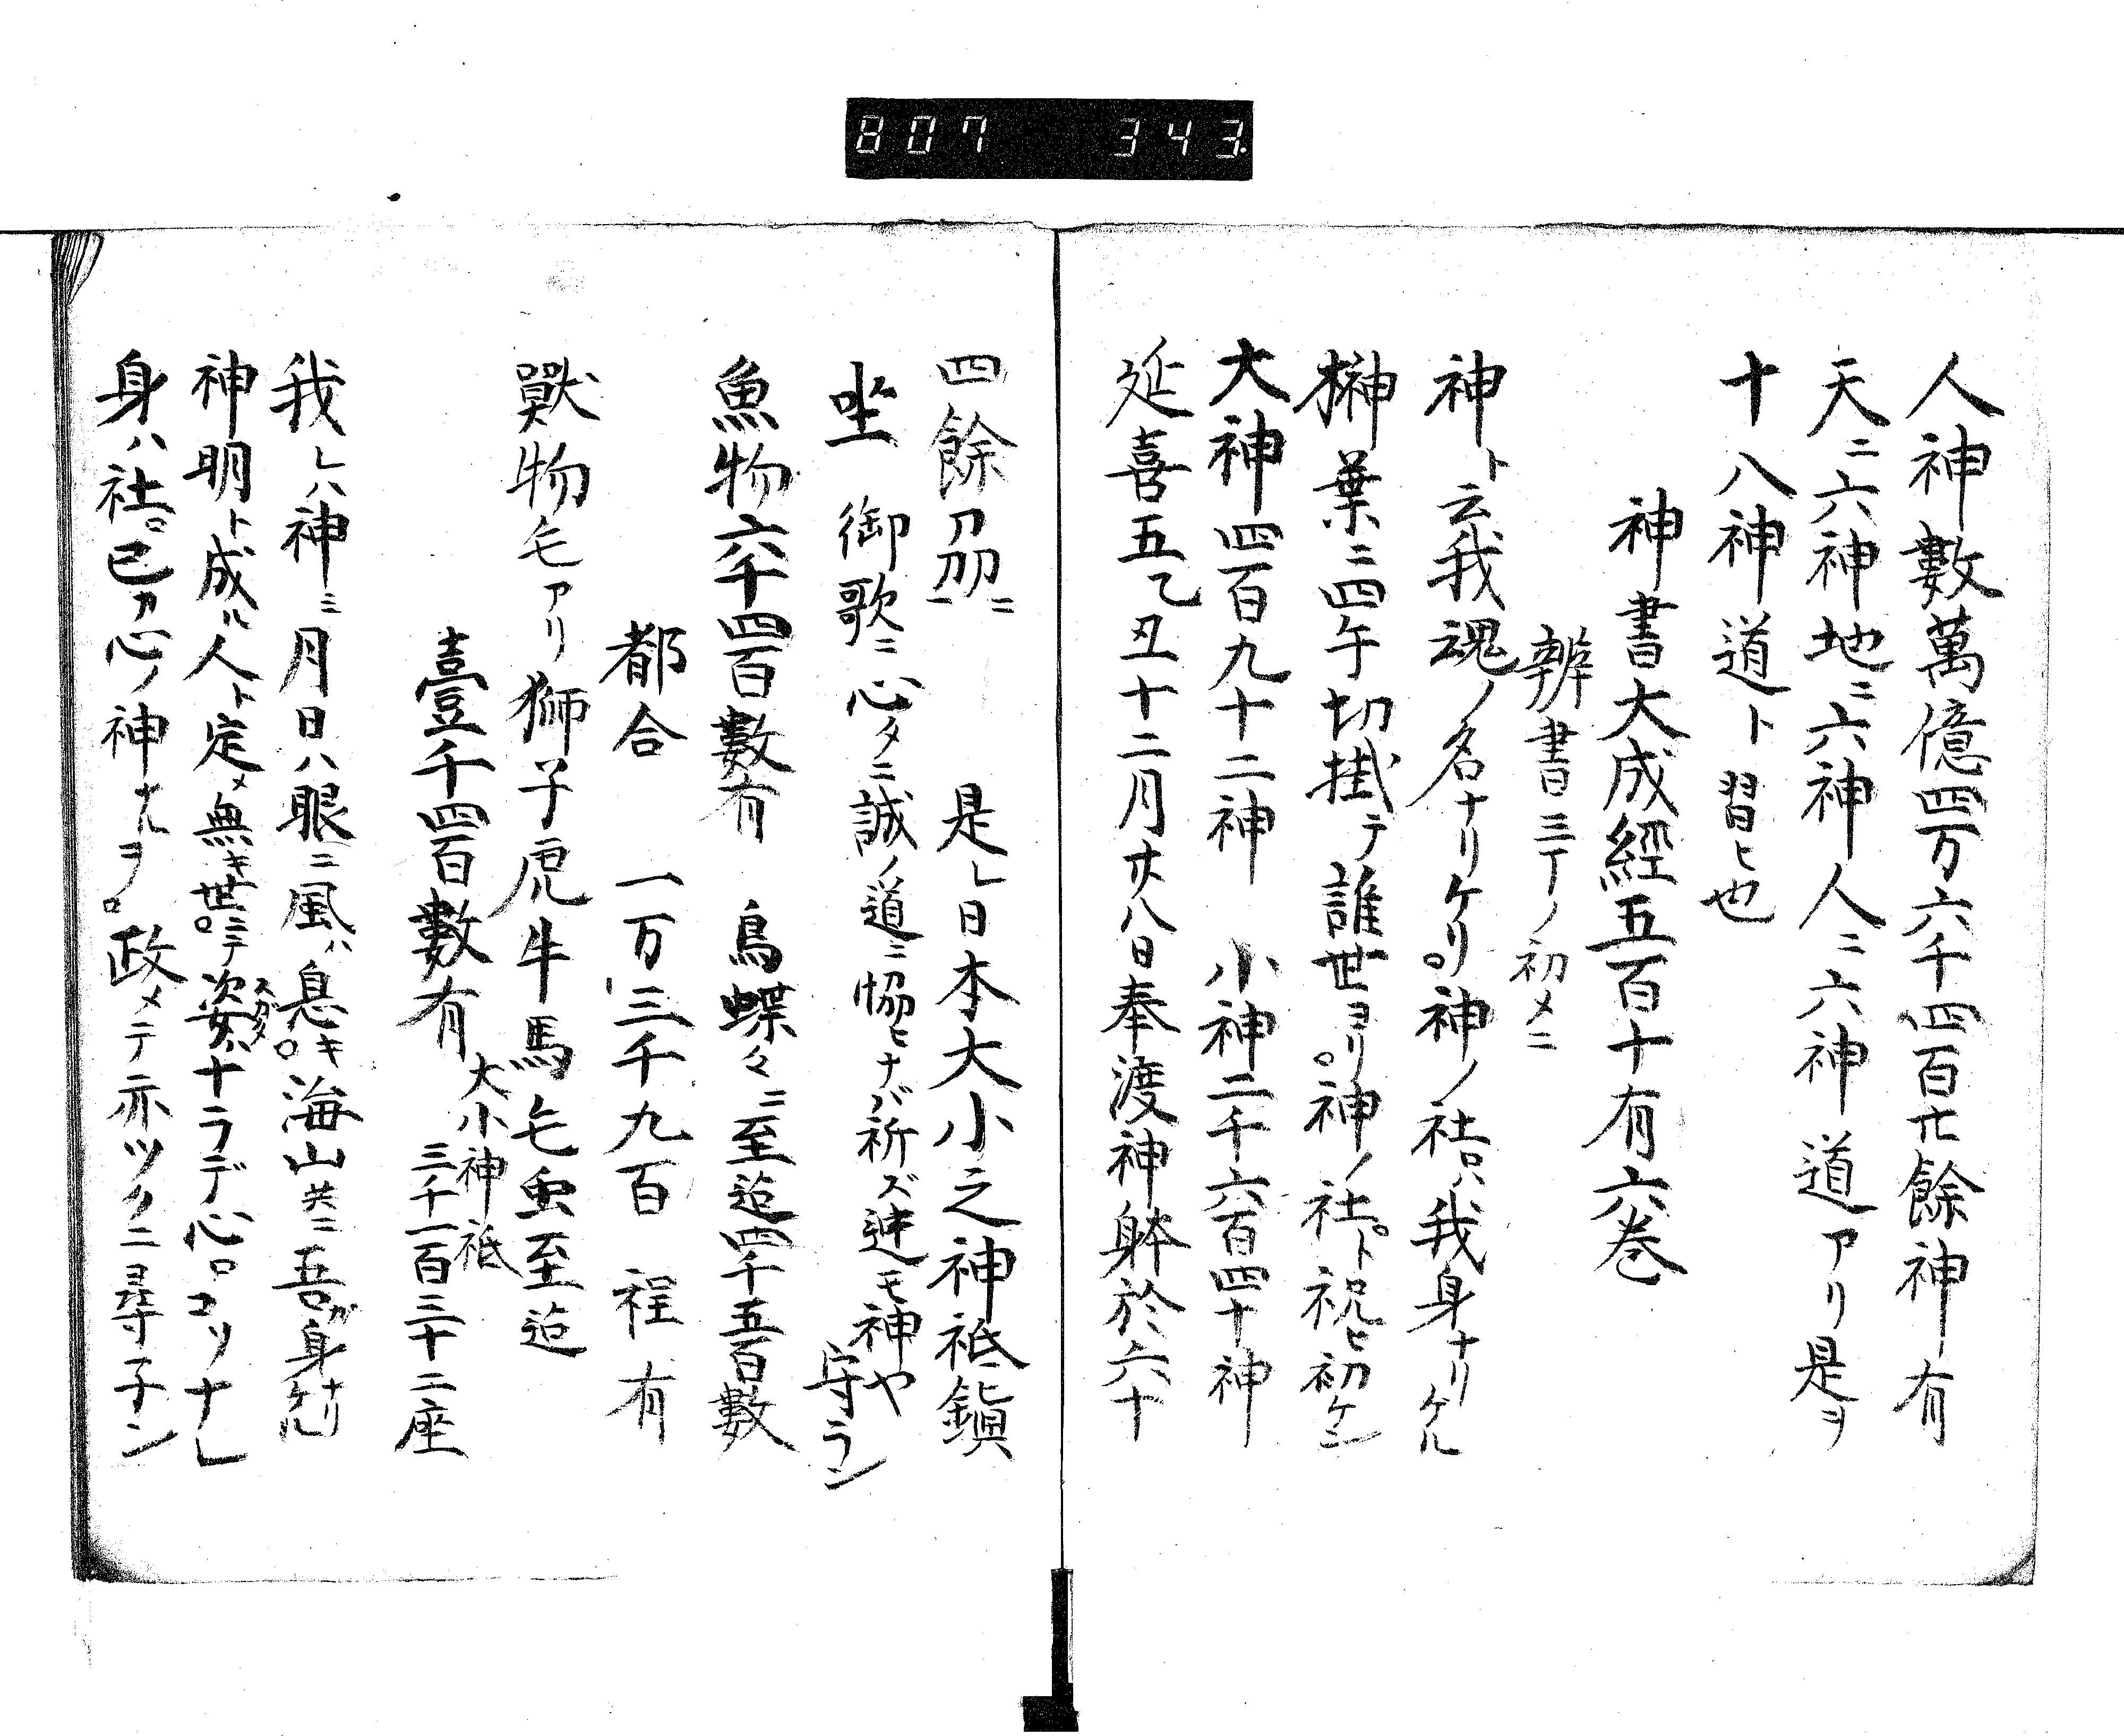 807 343
人神數萬億四万六千四百廿餘神有
天ニ六神地ニ六神人ニ六神道アリ是ヲ
十八神道ト習ヒ也
神書大成經五百十有六巻
辨書三丁ノ初メニ
神ト云我魂ノ名ナリケリ神ノ社ロハ我身ナリケル
榊葉ニ四午切掛テ誰世ヨリ神ノ社ト祝ヒ初ケン
大神四百九十二神 小神二千六百四十神
延喜五乙丑十二月廿八日奉渡神躰於六十
四餘刕ニ 是レ日本大小之神祇鎭
坐 御歌ニ心タニ誠ノ道ニ協ヒナバ祈ズ迚モ神ヤ守ラン
魚物六千四百數有 鳥蝶々ニ至迄四千五百數
都合 一万三千九百 程有
獸物乇アリ獅子虎牛馬乇虫至迄
壹千四百數有 大小神祇三千一百三十二座
我レハ神ニ月日ハ眼ニ風ハ息キ海山共ニ吾ガ身ナリケル
神明ト成ハ人ト定メ無キ世ニテ姿スガタナラデ心ロコソナレ
身ハ社ロ已ガ心ノ神ナルヲ 政メテ亦ツクニヨ尋子ン